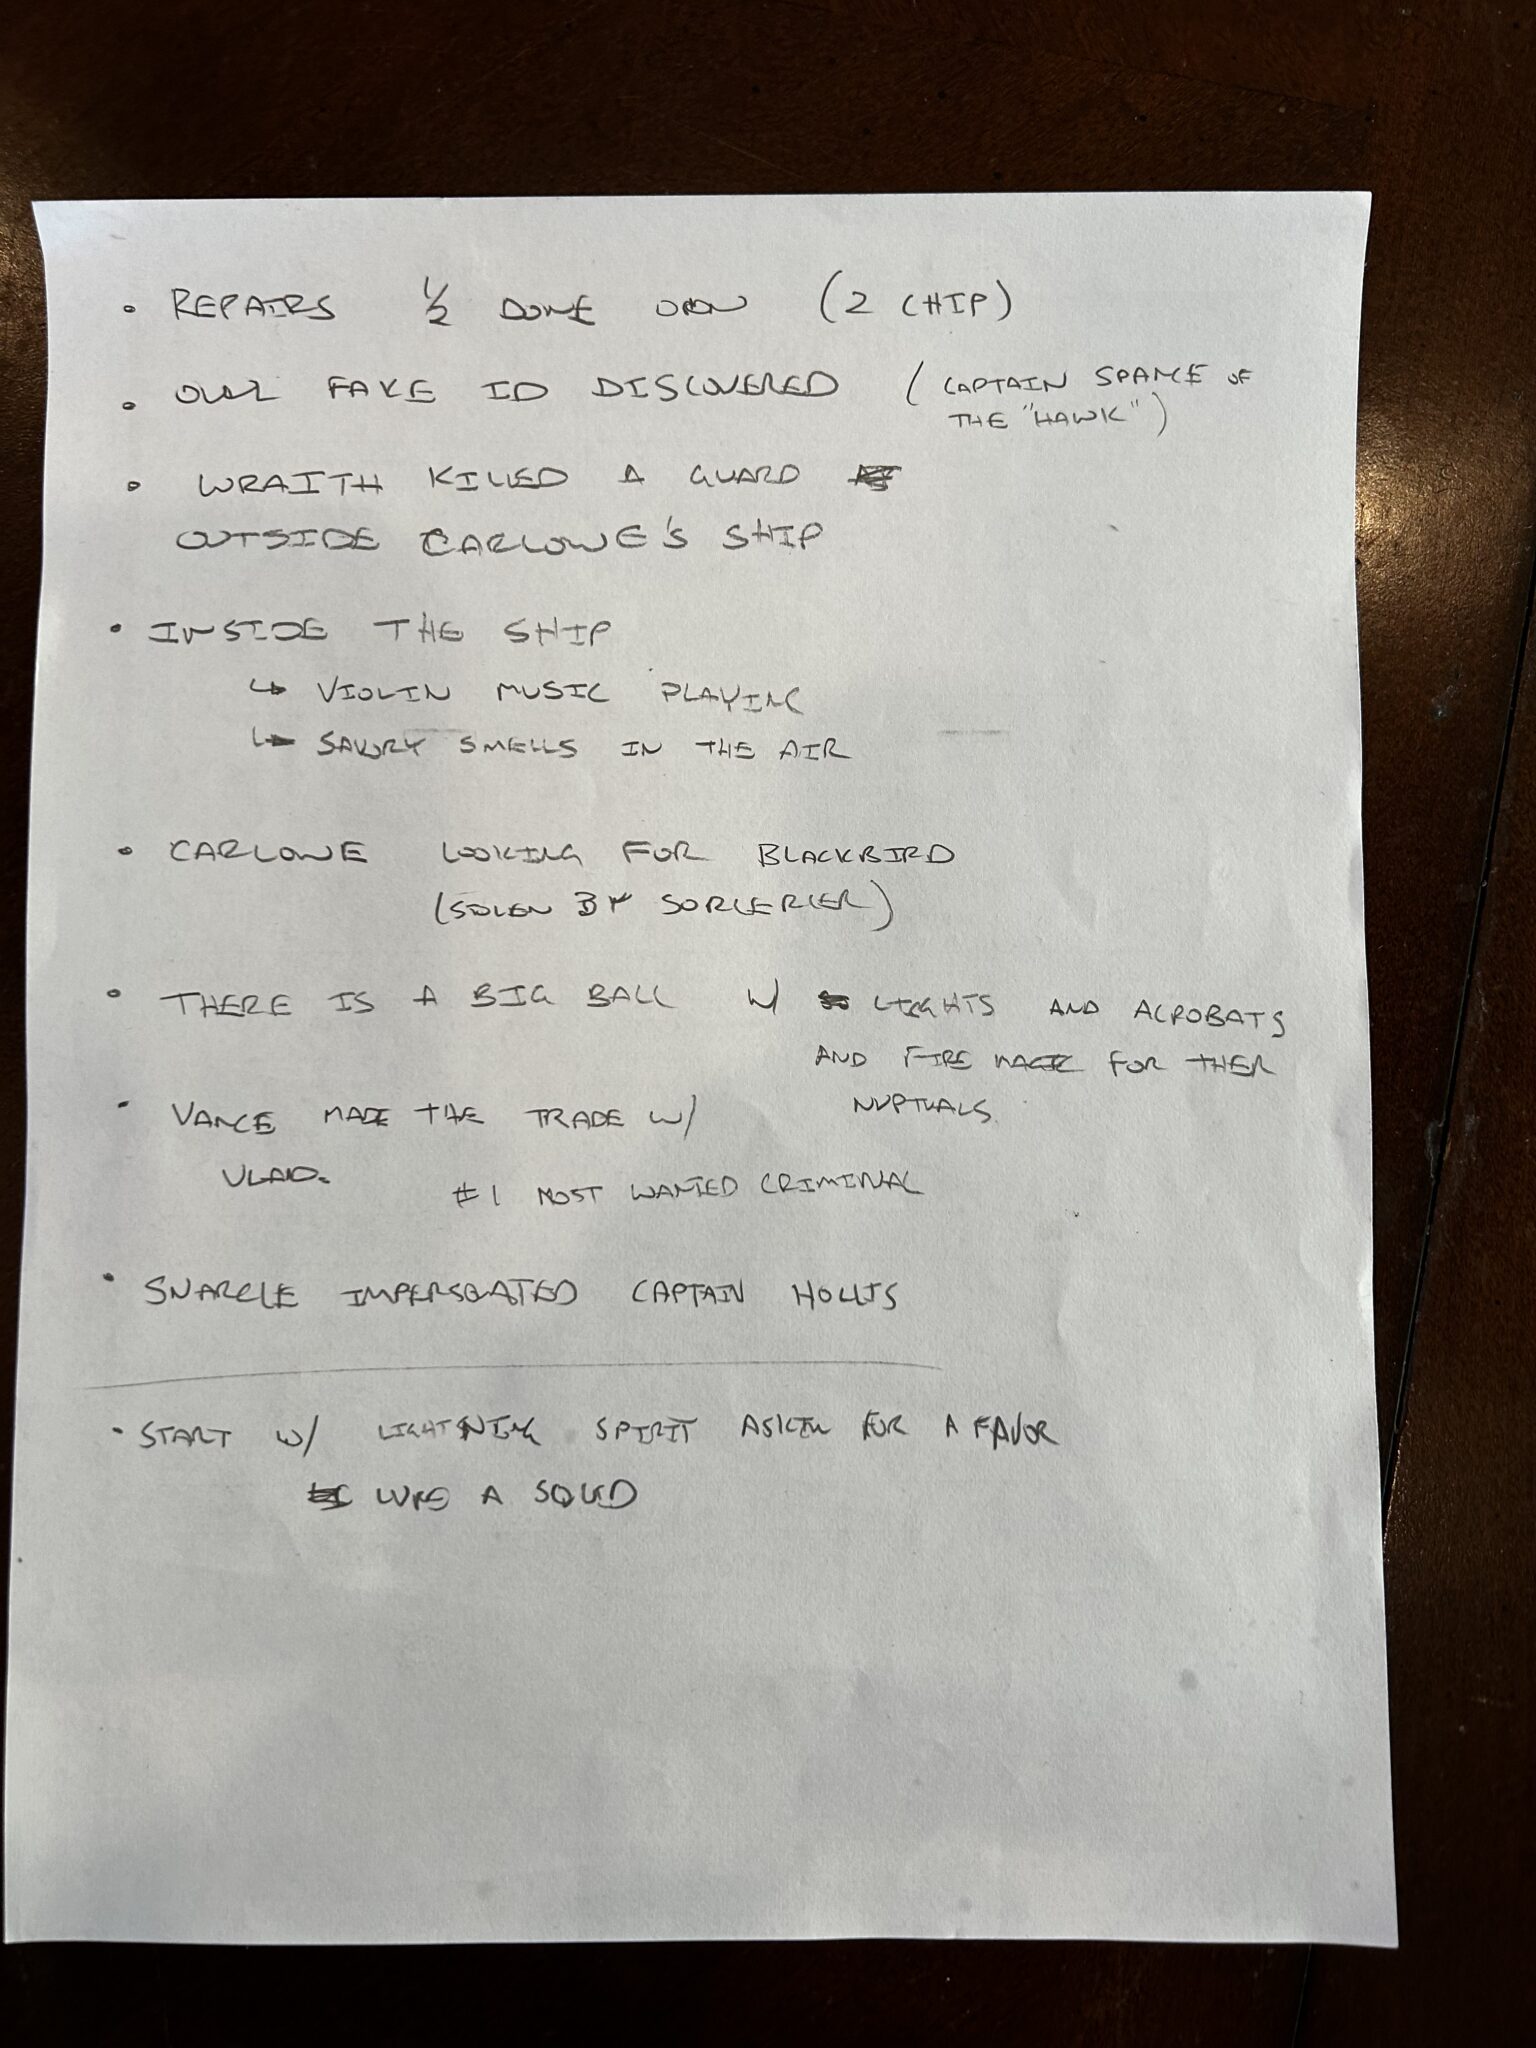 • REPAIRS 1/2 DONE (2 CHIP)
• OUR FAKE ID DISCOVERED (CAPTAIN OF
THE "HAWK")
• WRAITH KILLED A GUARD
OUTSIDE CARLOWE'S SHIP
• INSIDE THE SHIP
↳ VIOLIN MUSIC PLAYING
↳ SAVORY SMELLS IN THE AIR
• CARLOWE LOOKING FOR BLACKBIRD
(STOLEN BY SORCERER)
• THERE IS A BIG BALL W/ LIGHTS AND ACROBATS
AND FIRE MAGIC FOR THEIR
NUPTUALS.
• VANCE MADE THE TRADE W/
VLAD.
#1 MOST WANTED CRIMINAL
• SNARCLE IMPERSONATED CAPTAIN HOLLIS
• START W/ LIGHTNING SPIRIT ASKIN FOR A FAVOR
LIKE A SQUID